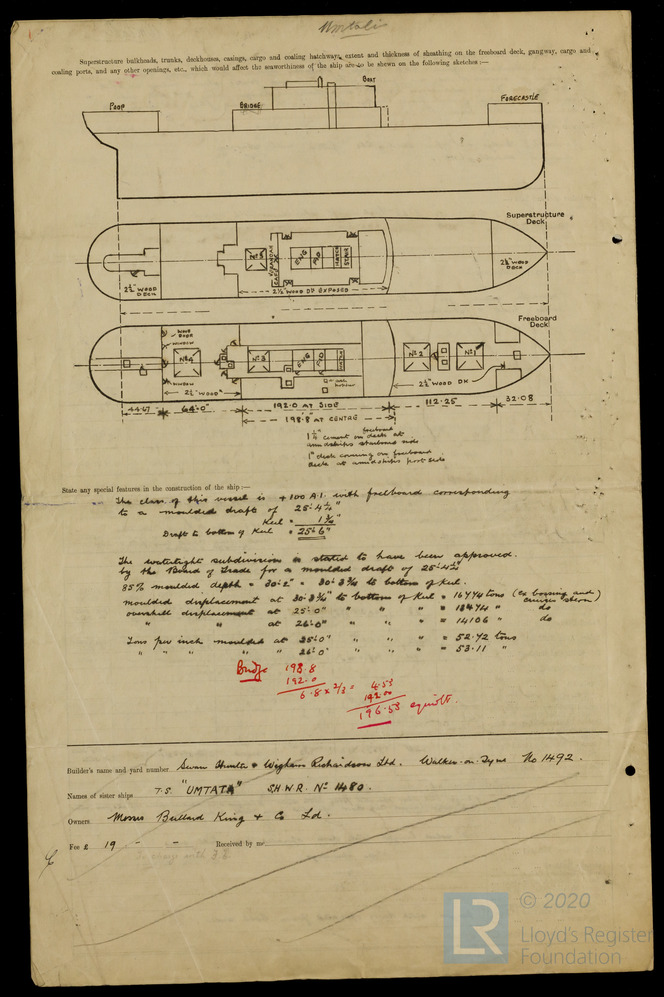 Umtali
Superstructure bulkheads, trunks, deckhouses, casings, cargo and coaling hatchways, extent and thickness of sheathing on the freeboard deck, gangway, cargo and
coaling ports, and any other openings, etc., which would affect the seaworthiness of the ship are to be shewn on the following sketches:—
POOP
BRIDGE
BOAT
FORECASTLE
Superstructure
Deck
ENG
2½" WOOD
DECK
2½" WOOD DK EXPOSED
2½" WOOD
DECK
Freeboard
Deck
WOOD
DOOR
WINDOW
Nº4
Nº3
ENG
Nº2
Nº1
WINDOW
2½" WOOD
2½" WOOD DK
44·67
64'·0"
192·0 AT SIDE
112·25
32·08
198·8" AT CENTRE
freeboard
1¼" cement on deck at
amidships starboard side
1" deck covering on freeboard
deck at amidships port side
State any special features in the construction of the ship:—
The class of this vessel is +100 A.1. with freeboard corresponding
to a moulded draft of 25'-4¼"
Keel = 1¾"
Draft to bottom of Keel = 25'-6"
The watertight subdivision is stated to have been approved.
by the Board of Trade for a moulded draft of 25'-4¼"
85% moulded depth = 30'-2" = 30'-3¾" to bottom of Keel.
moulded displacement at 30'-3¾" to bottom of Keel = 16474 tons (ex bossing and
cruiser stern)
overshell displacement at 25'-0" " " " = 13474 " do
" " at 26'-0" " " " = 14106 " do
Tons per inch moulded at 25'-0" " " " = 52·72 tons
" " " " " 26'-0" " " " = 53·11 "
Bridge 198·8
192·0
6·8 x 2/3 = 4·53
192·00
196·53 equivlt.
Builder's name and yard number Swan Hunter & Wigham Richardson Ltd. Walker-on-Tyne No 1492.
Names of sister ships T.S. "UMTATA" S.H.W.R. Nº 1480.
Owners Messrs Bullard King & Co Ld.
Fee £ 19 - - Received by me
© 2020
LR
Lloyd's Register
Foundation